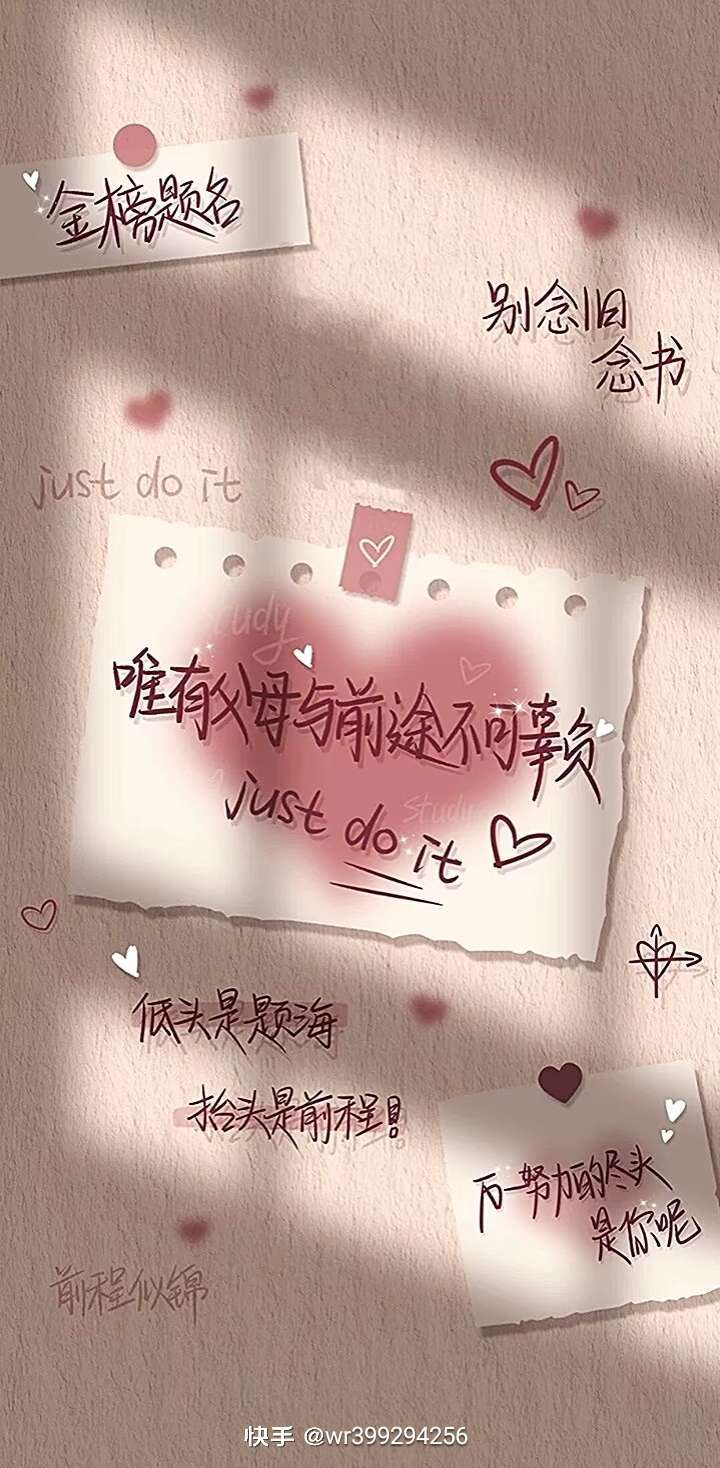 金榜题名
别念旧
念书
just do it
study
唯有父母与前途不可辜负
study
just do it
低头是题海
抬头是前程!
万一努力的尽头
是你呢
前程似锦
快手 @wr399294256